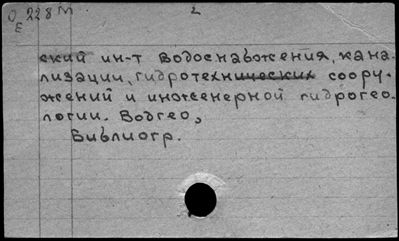 О 228 м 2
Е
ский ин-т водоснабжения, кана-
лизации, гидротехнических соору-
жений и инженерной гидрогео-
логии. Водгео,
Библиогр.